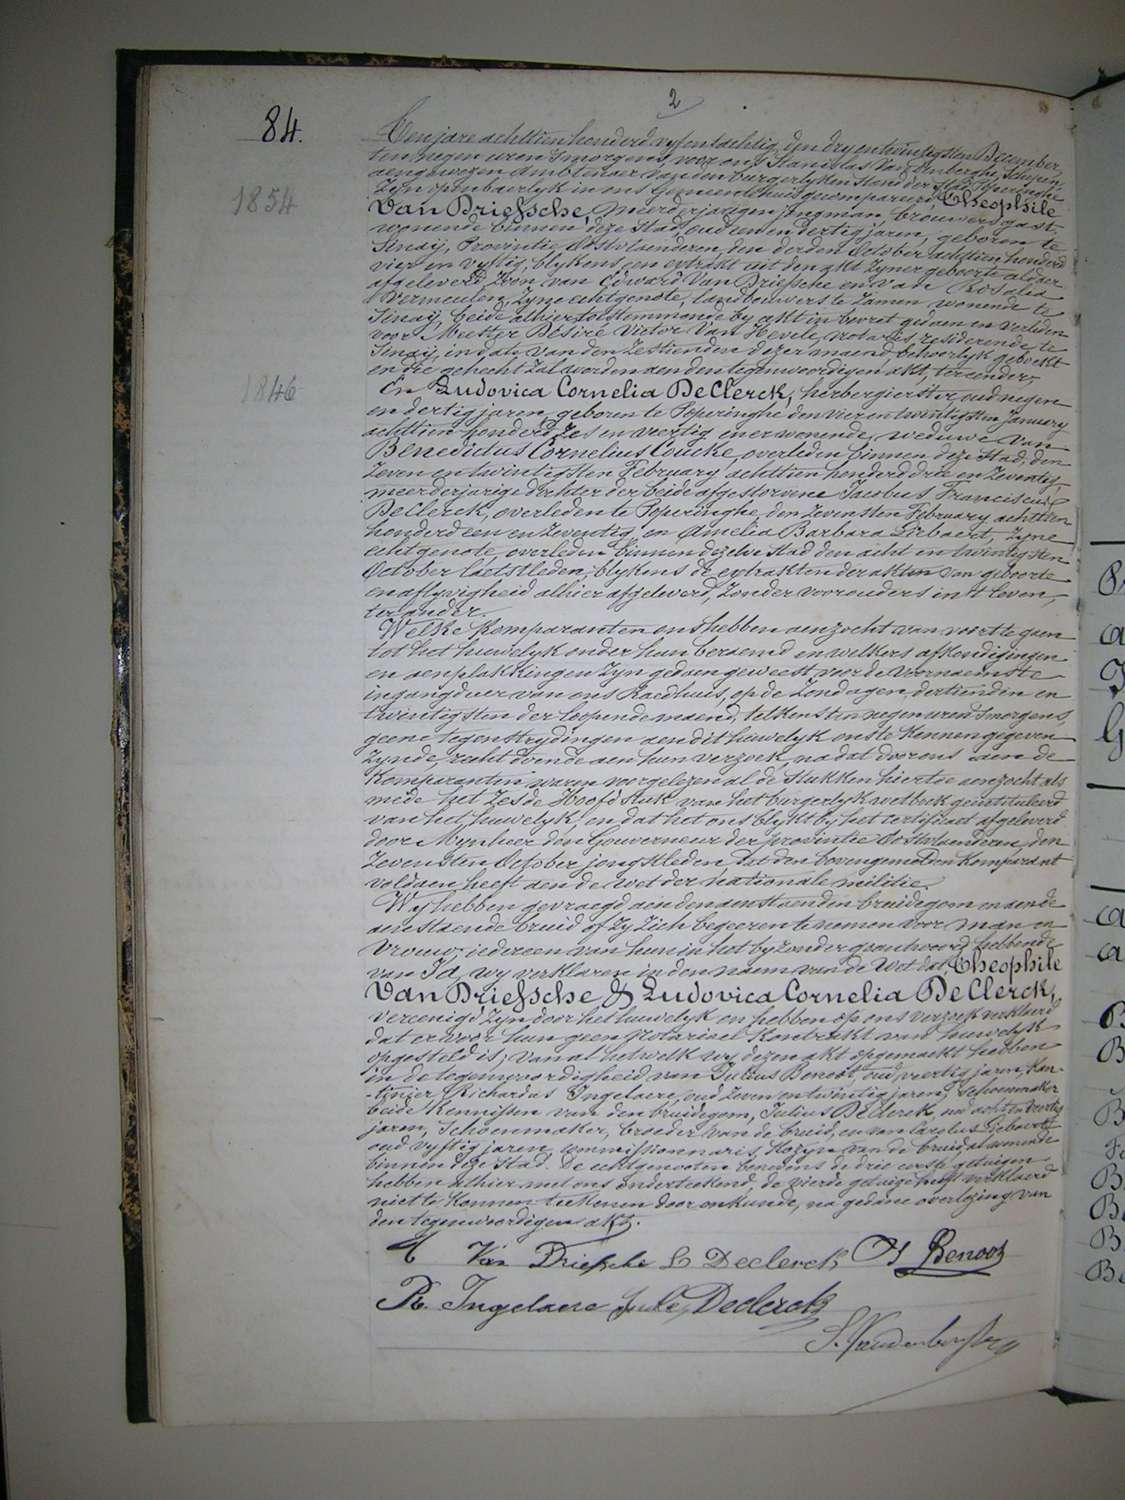 2
84.
Ten jare achttien honderd vyf en tachtig, den dry en twintigsten December,
ten negen uren 's morgens, voor ons Stanislas Vandenberghe, Schepen,
aengewezen Ambtenaer van den burgerlyken stand der Stad Poperinghe
Zyn openbaerlyk in ons Gemeentehuis gecompareerd, Theophile
1854
Van Driessche, meerderjarigen jongman, brouwersgast,
wonende binnen deze Stad, oud een en dertig jaren, geboren te
Sinaÿ, Provintie Oostvlaenderen, den derden October achttien honderd
vier en vyftig, blykens een extrakt uit den akt zyner geboorte aldaer
afgeleverd, Zoon van Edward Van Driessche en van Rosalia
Vermeulen, Zyne echtgenote, landbouwers te Zamen wonende te
Sinaÿ, beide alhier toestemmende by akt in brevet gedaen en verleden
voor Meester Désiré Victor Van Hevele, notaris, residerende te
Sinaÿ, in date van den Zestienden dezer maend, behoorlyk geboekt
en die gehecht zal worden aen den tegenwoordigen akt, ter eender,
1846
En Ludovica Cornelia De Clerck, herbergierster, oud negen
en dertig jaren, geboren te Poperinghe den vier en twintigsten January
achttien honderd Zes en veertig en er wonende, weduwe van
Benedictus Cornelius Coucke, overleden binnen deze Stad, den
Zeven en twintigsten February achttien honderd drie en Zeventig,
meerderjarige dochter der beide afgestorvene Jacobus Franciscus
De Clerck, overleden te Poperinghe, den Zevensten February achttien
honderd een en Zeventig en Amelia Barbara Liebaert, Zyne
echtgenote, overleden binnen dezelve Stad den acht en twintigsten
October laetstleden, blykens de extrakten der akten van geboorte
en aflyvigheid alhier afgeleverd, Zonder voorouders in 't leven,
ter ander.
Welke komparanten ons hebben aenzocht van voort te gaen
tot het huwelyk onder hun beraemd en welkers afkondigingen
en aenplakkingen Zyn gedaen geweest voor de voornaemste
ingangdeur van ons Raedhuis, op de Zondagen, dertienden en
twintigsten der loopende maend, telkens ten negen uren 's morgens,
geene tegenstrydingen aen dit huwelyk ons te kennen gegeven
Zynde, recht doende aen hun verzoek, na dat door ons aen de
komparanten waren voorgelezen al de stukken hiertoe aenzocht als
mede het Zesde Hoofdstuk van het burgerlyk wetboek geïntituleerd
van het huwelyk, en dat het ons blykt by het certificaet afgeleverd
door Mynheer den Gouverneur der provintie Oostvlaenderen, den
Zevensten October jongstleden dat den bovengemelden komparant
voldaen heeft aen de wet der nationale militie.
Wy hebben gevraegd aen den aenstaenden bruidegom en aen de
aenstaende bruid of Zy Zich begeeren te nemen voor man en
vrouw, iedereen van hun in het byzonder geantwoord hebbende
van Ja, wy verklaren in den naem van de Wet dat, Theophile
Van Driessche & Ludovica Cornelia De Clerck,
vereenigd Zyn door het huwelyk en hebben op ons verzoek verklaerd
dat er voor hun geen Notariael Kontrakt van huwelyk
opgesteld is, van al hetwelk wy dezen akt opgemaekt hebben
in de tegenwoordigheid van Julius Benoot, oud veertig jaren, kan-
-tinier, Richardus Ingelaere, oud Zeven en twintig jaren, schoenmaker
beide kennissen van den bruidegom, Julius De Clerck, oud acht en veertig
jaren, Schoenmaker, broeder van de bruid, en van Carolus
oud vyftig jaren, commissionnaris, Kozyn van de bruid, al wonende
binnen deze Stad. De echtgenooten benevens de drie eerste getuigen
hebben alhier met ons onderteekend, de vierde getuige heeft verklaerd
niet te konnen teekenen door onkunde, na gedane overlezing van
den tegenwoordigen akt.
Van Driessche L Declerck J Benoot
R. Ingelaere Jules Declerck
S. Vandenberghe